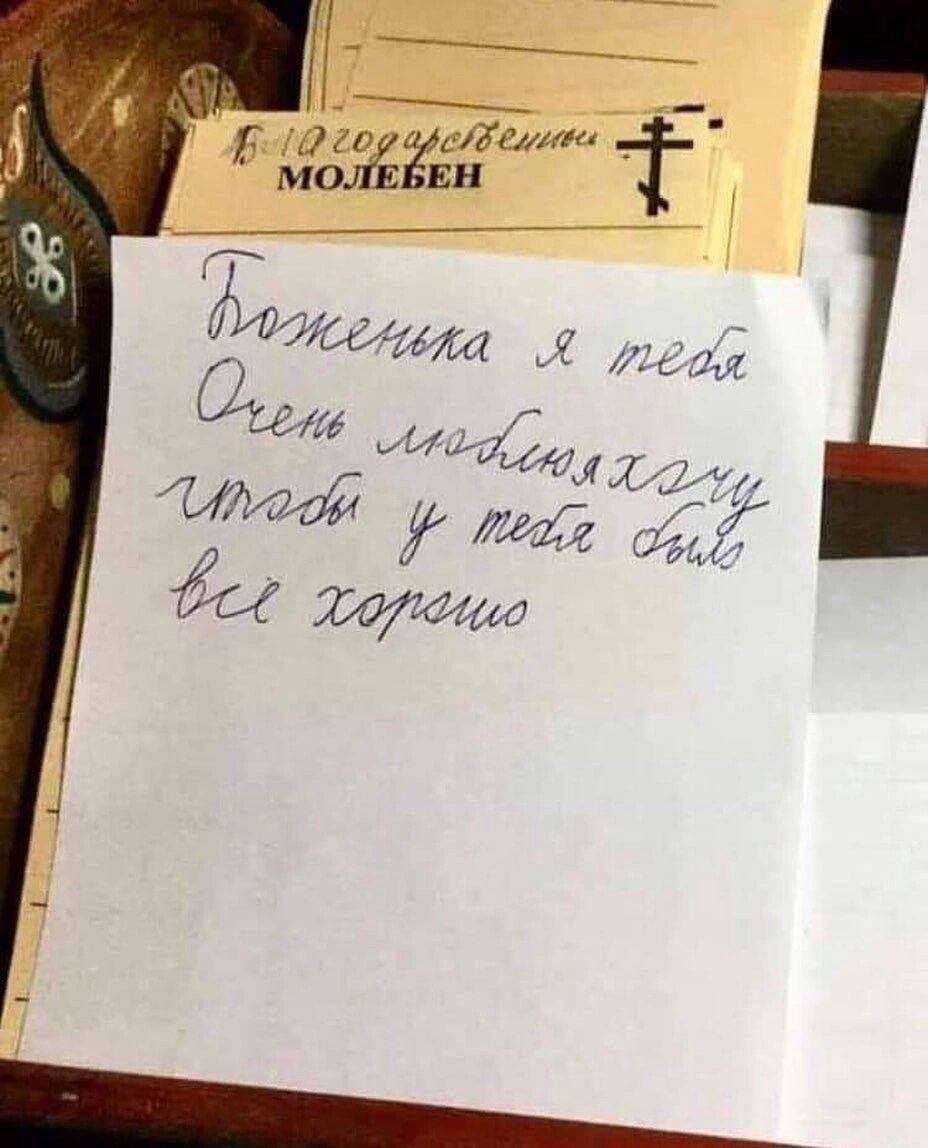 Благодарственный
МОЛЕБЕН
Боженька я тебя
Очень люблю я хочу
чтобы у тебя было
все хорошо